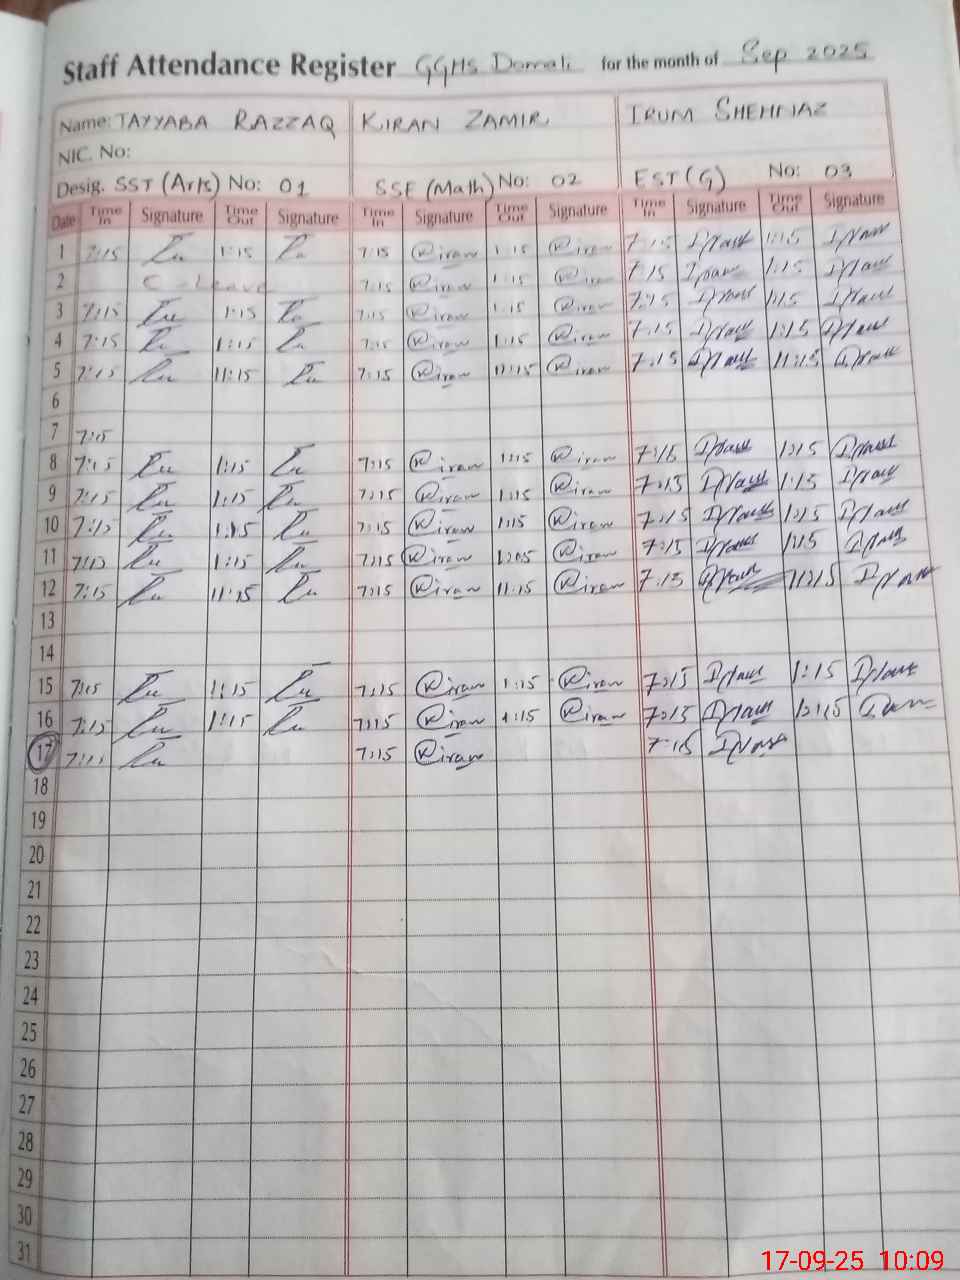 Staff Attendance Register GGHS Domali for the month of Sep 2025
Name: TAYYABA RAZZAQ KIRAN ZAMIR IRUM SHEHNAZ
NIC. No:
Desig. SST (Arts) No: 01 SSE (Math) No: 02 EST (G) No: 03
Date Time In Signature Time Out Signature Time In Signature Time Out Signature Time In Signature Time Out Signature
1 7:15 1:15 7:15 Kiran 1:15 Kiran 7:15 1:15
2 C - Leave 7:15 Kiran 1:15 Kiran 7:15 1:15
3 7:15 1:15 7:15 Kiran 1:15 Kiran 7:15 1:15
4 7:15 1:15 7:15 Kiran 1:15 Kiran 7:15 1:15
5 7:15 11:15 7:15 Kiran 11:15 Kiran 7:15 11:15
6
7 7:15
8 7:15 1:15 7:15 Kiran 1:15 Kiran 7:15 1:15
9 7:15 1:15 7:15 Kiran 1:15 Kiran 7:15 1:15
10 7:15 1:15 7:15 Kiran 1:15 Kiran 7:15 1:15
11 7:15 1:15 7:15 Kiran Kiran 7:15 1:15
12 7:15 11:15 7:15 Kiran 11:15 Kiran 7:15 11:15
13
14
15 7:15 1:15 7:15 Kiran 1:15 Kiran 7:15 1:15
16 7:15 1:15 7:15 Kiran 1:15 Kiran 7:15 1:15
17 7:15 7:15 Kiran 7:15
18
19
20
21
22
23
24
25
26
27
28
29
30
31
17-09-25 10:09